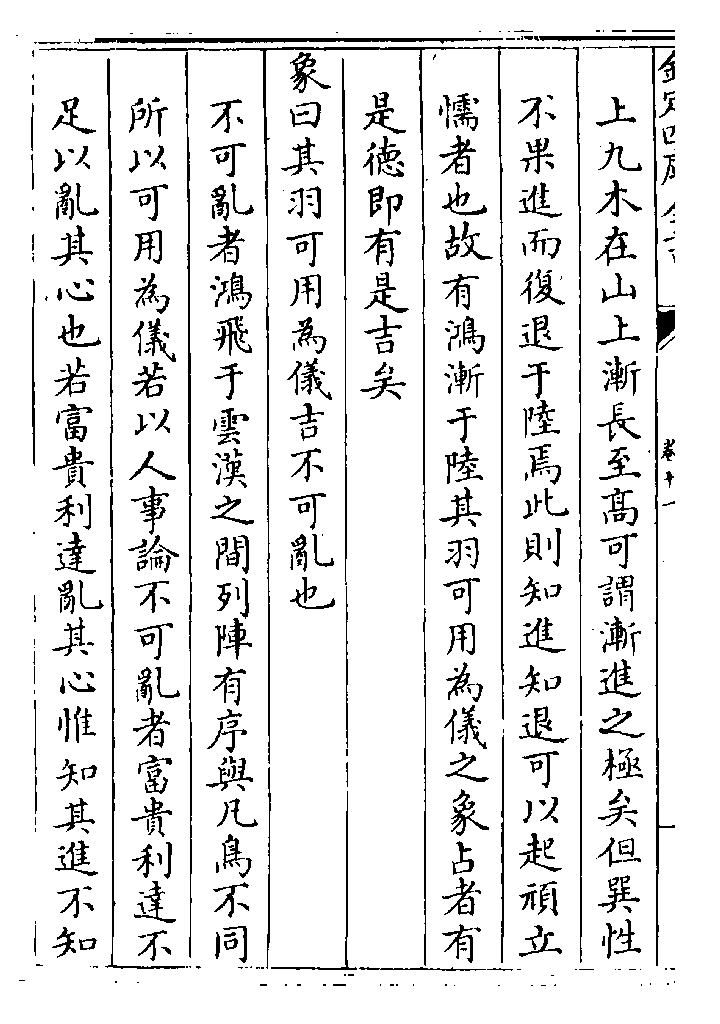 欽定四庫全書
卷十一
上九木在山上漸長至高可謂漸進之極矣但巽性
不果進而復退于陸焉此則知進知退可以起頑立
懦者也故有鴻漸于陸其羽可用為儀之象占者有
是德即有是吉矣
象曰其羽可用為儀吉不可亂也
不可亂者鴻飛于雲漢之間列陣有序與凡鳥不同
所以可用為儀若以人事論不可亂者富貴利達不
足以亂其心也若富貴利達亂其心惟知其進不知